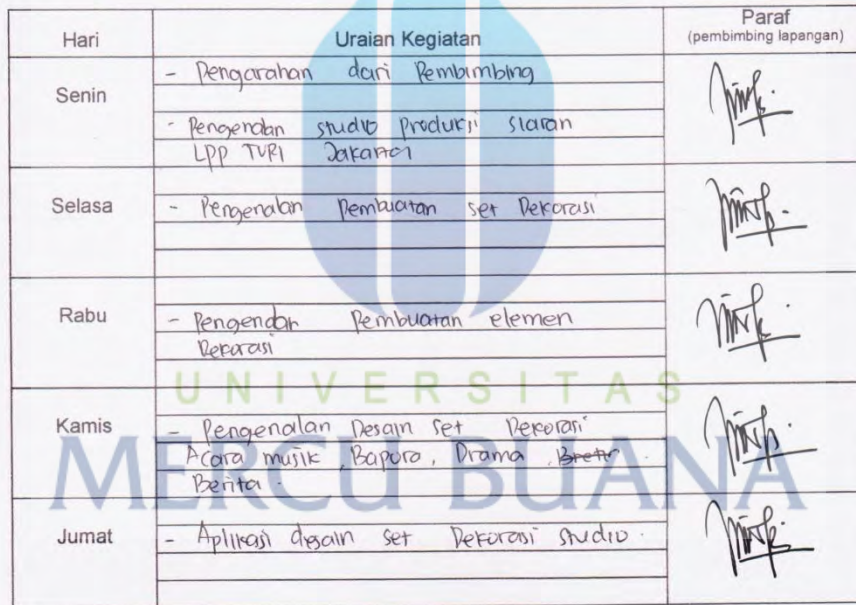 Hari
Uraian Kegiatan
Paraf
(pembimbing lapangan)
Senin
- Pengarahan dari Pembimbing
- Pengenalan studio produksi siaran
LPP TVRI Jakarta
Selasa
- Pengenalan Pembuatan set Dekorasi
Rabu
- Pengenalan Pembuatan elemen
Dekorasi
UNIVERSITAS
Kamis
- Pengenalan Desain set Dekorasi
Acara musik, Bapora, Drama,
Berita.
MERCU BUANA
Jumat
- Aplikasi desain set Dekorasi studio.